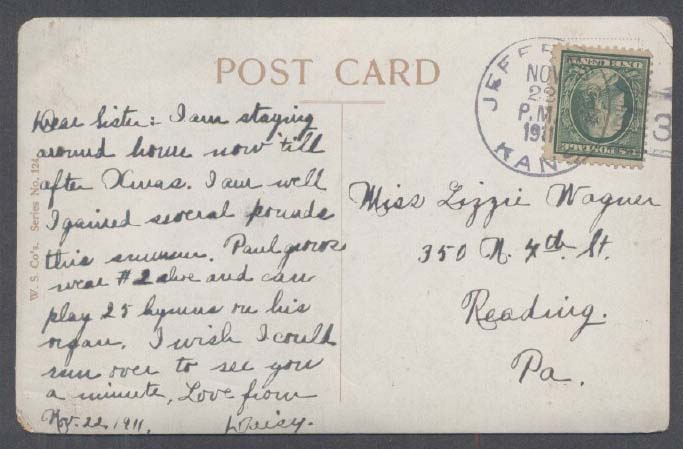 POST CARD
Dear Sister: I am staying
around home now 'till
after Xmas. I am well
I gained several pounds
this summer. Paul grows
wear #2 shoe and can
play 25 hymns on his
organ. I wish I could
run over to see you
a minute, Love from
Nov. 22, 1911. Daisy.
Miss Lizzie Wagner
350 N. 4th. St.
Reading.
Pa.
W. S. Co's. Series No. 124
JEFFER
NOV
22
P.M.
1911
KAN